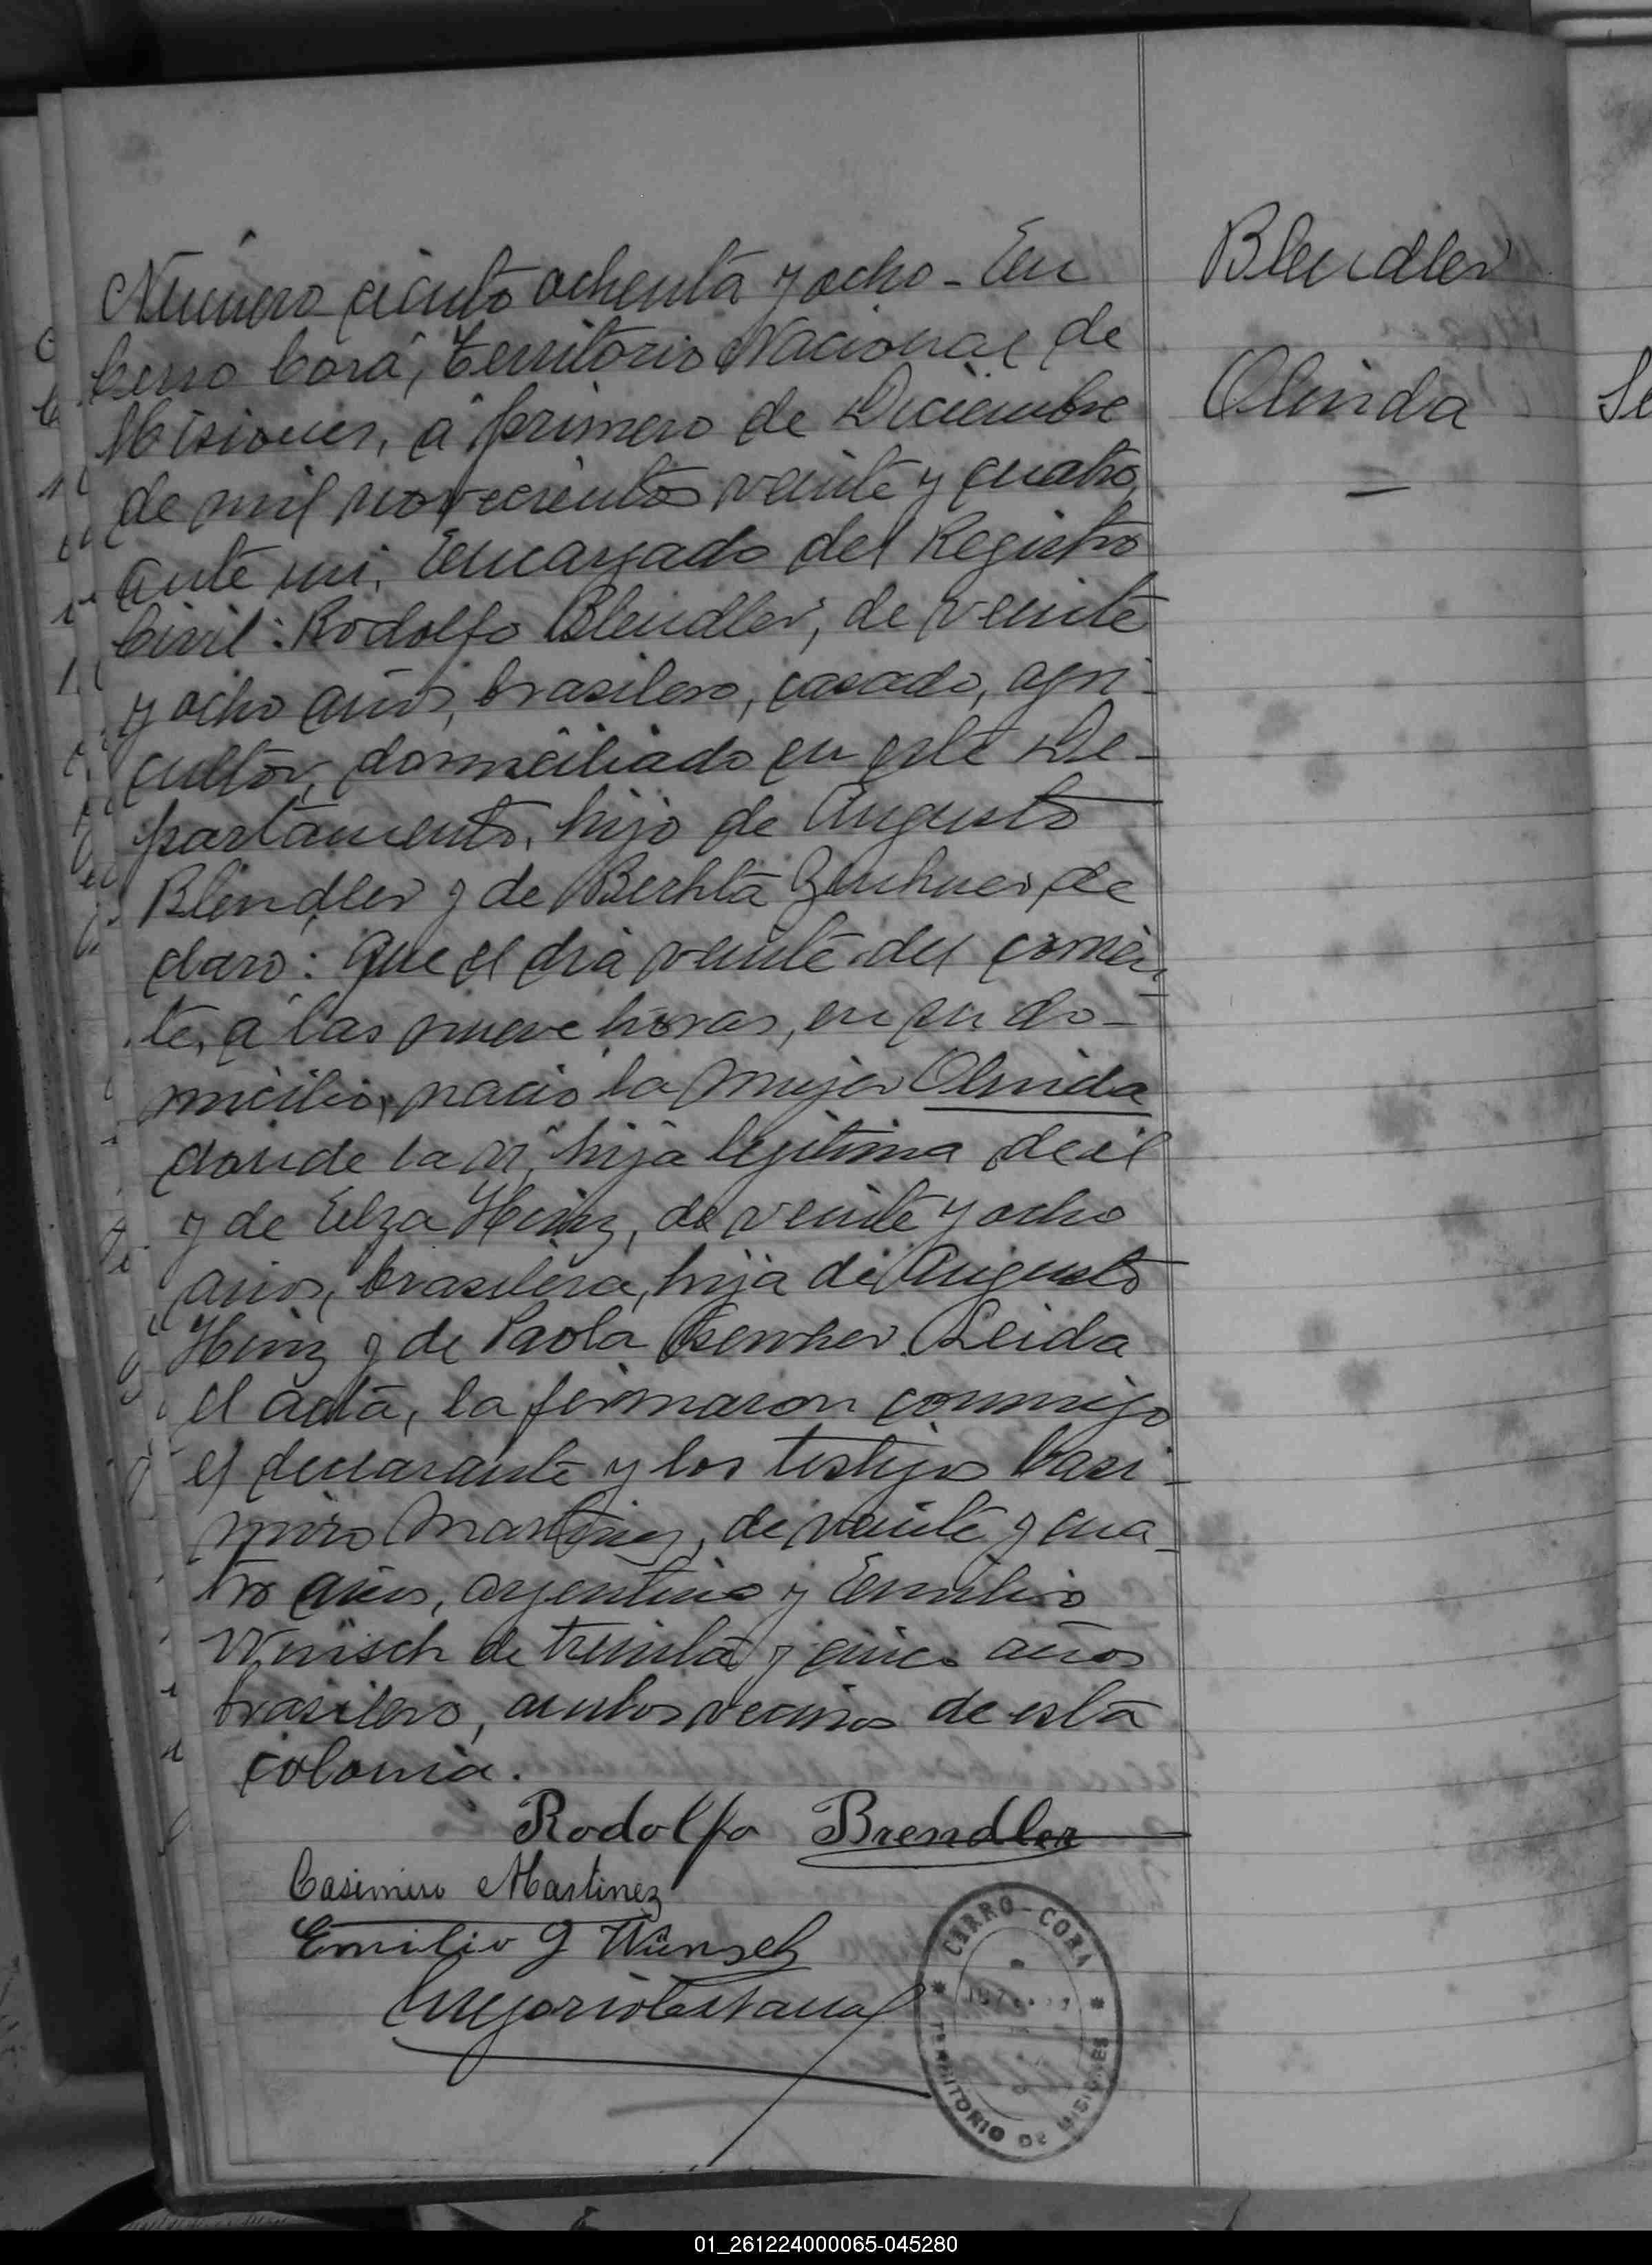 Blendler
Olinda
Número ciento ochenta y ocho - En
Cerro Corá, Territorio Nacional de
Misiones, á primero de Diciembre
de mil novecientos veinte y cuatro,
ante mi, Encargado del Registro
Civil: Rodolfo Blendler, de veinte
y ocho años, brasilero, casado, agri-
cultor, domiciliado en este De-
partamento, hijo de Augusto
Blendler y de Berhta de
claró: Que el dia veinte del corrien-
te, á las nueve horas, en su do-
micilio, nació la mujer Olinda
donde la ví, hija legitima de él
y de Elza Hinz, de veinte y ocho
años, brasilera, hija de Augusto
Hinz y de Paola Leida
el acta, la firmaron conmigo
el declarante y los testigos Casi-
miro Martinez, de veinte y cua-
tro años, argentino y Emilio
Wünsch de treinta y cinco años
brasilero, ambos vecinos de esta
colonia.
Rodolfo Brendler
Casimiro Martinez
Emilio G Wünsch
CERRO-CORA
TERRITORIO DE MISIONES
01_261224000065-045280